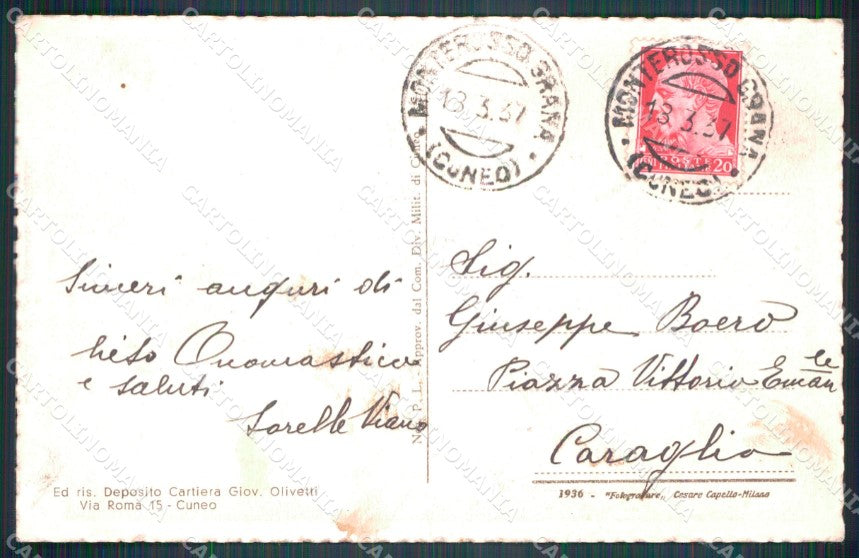 MONTEROSSO GRANA
18.3.37
(CUNEO)
MONTEROSSO GRANA
18.3.37
(CUNEO)
POSTE
20
Sinceri auguri di
lieto Onomastico
e saluti
Sorelle Viano
N. P. L. Approv. dal Com. Div. Milit. di
Sig.
Giuseppe Boero
Piazza Vittorio Eman.le
Caraglio
Ed ris. Deposito Cartiera Giov. Olivetti
Via Roma 15 - Cuneo
1936 - "Fotogravure" Cesare Capello-Milano
CARTOLINOMANIA